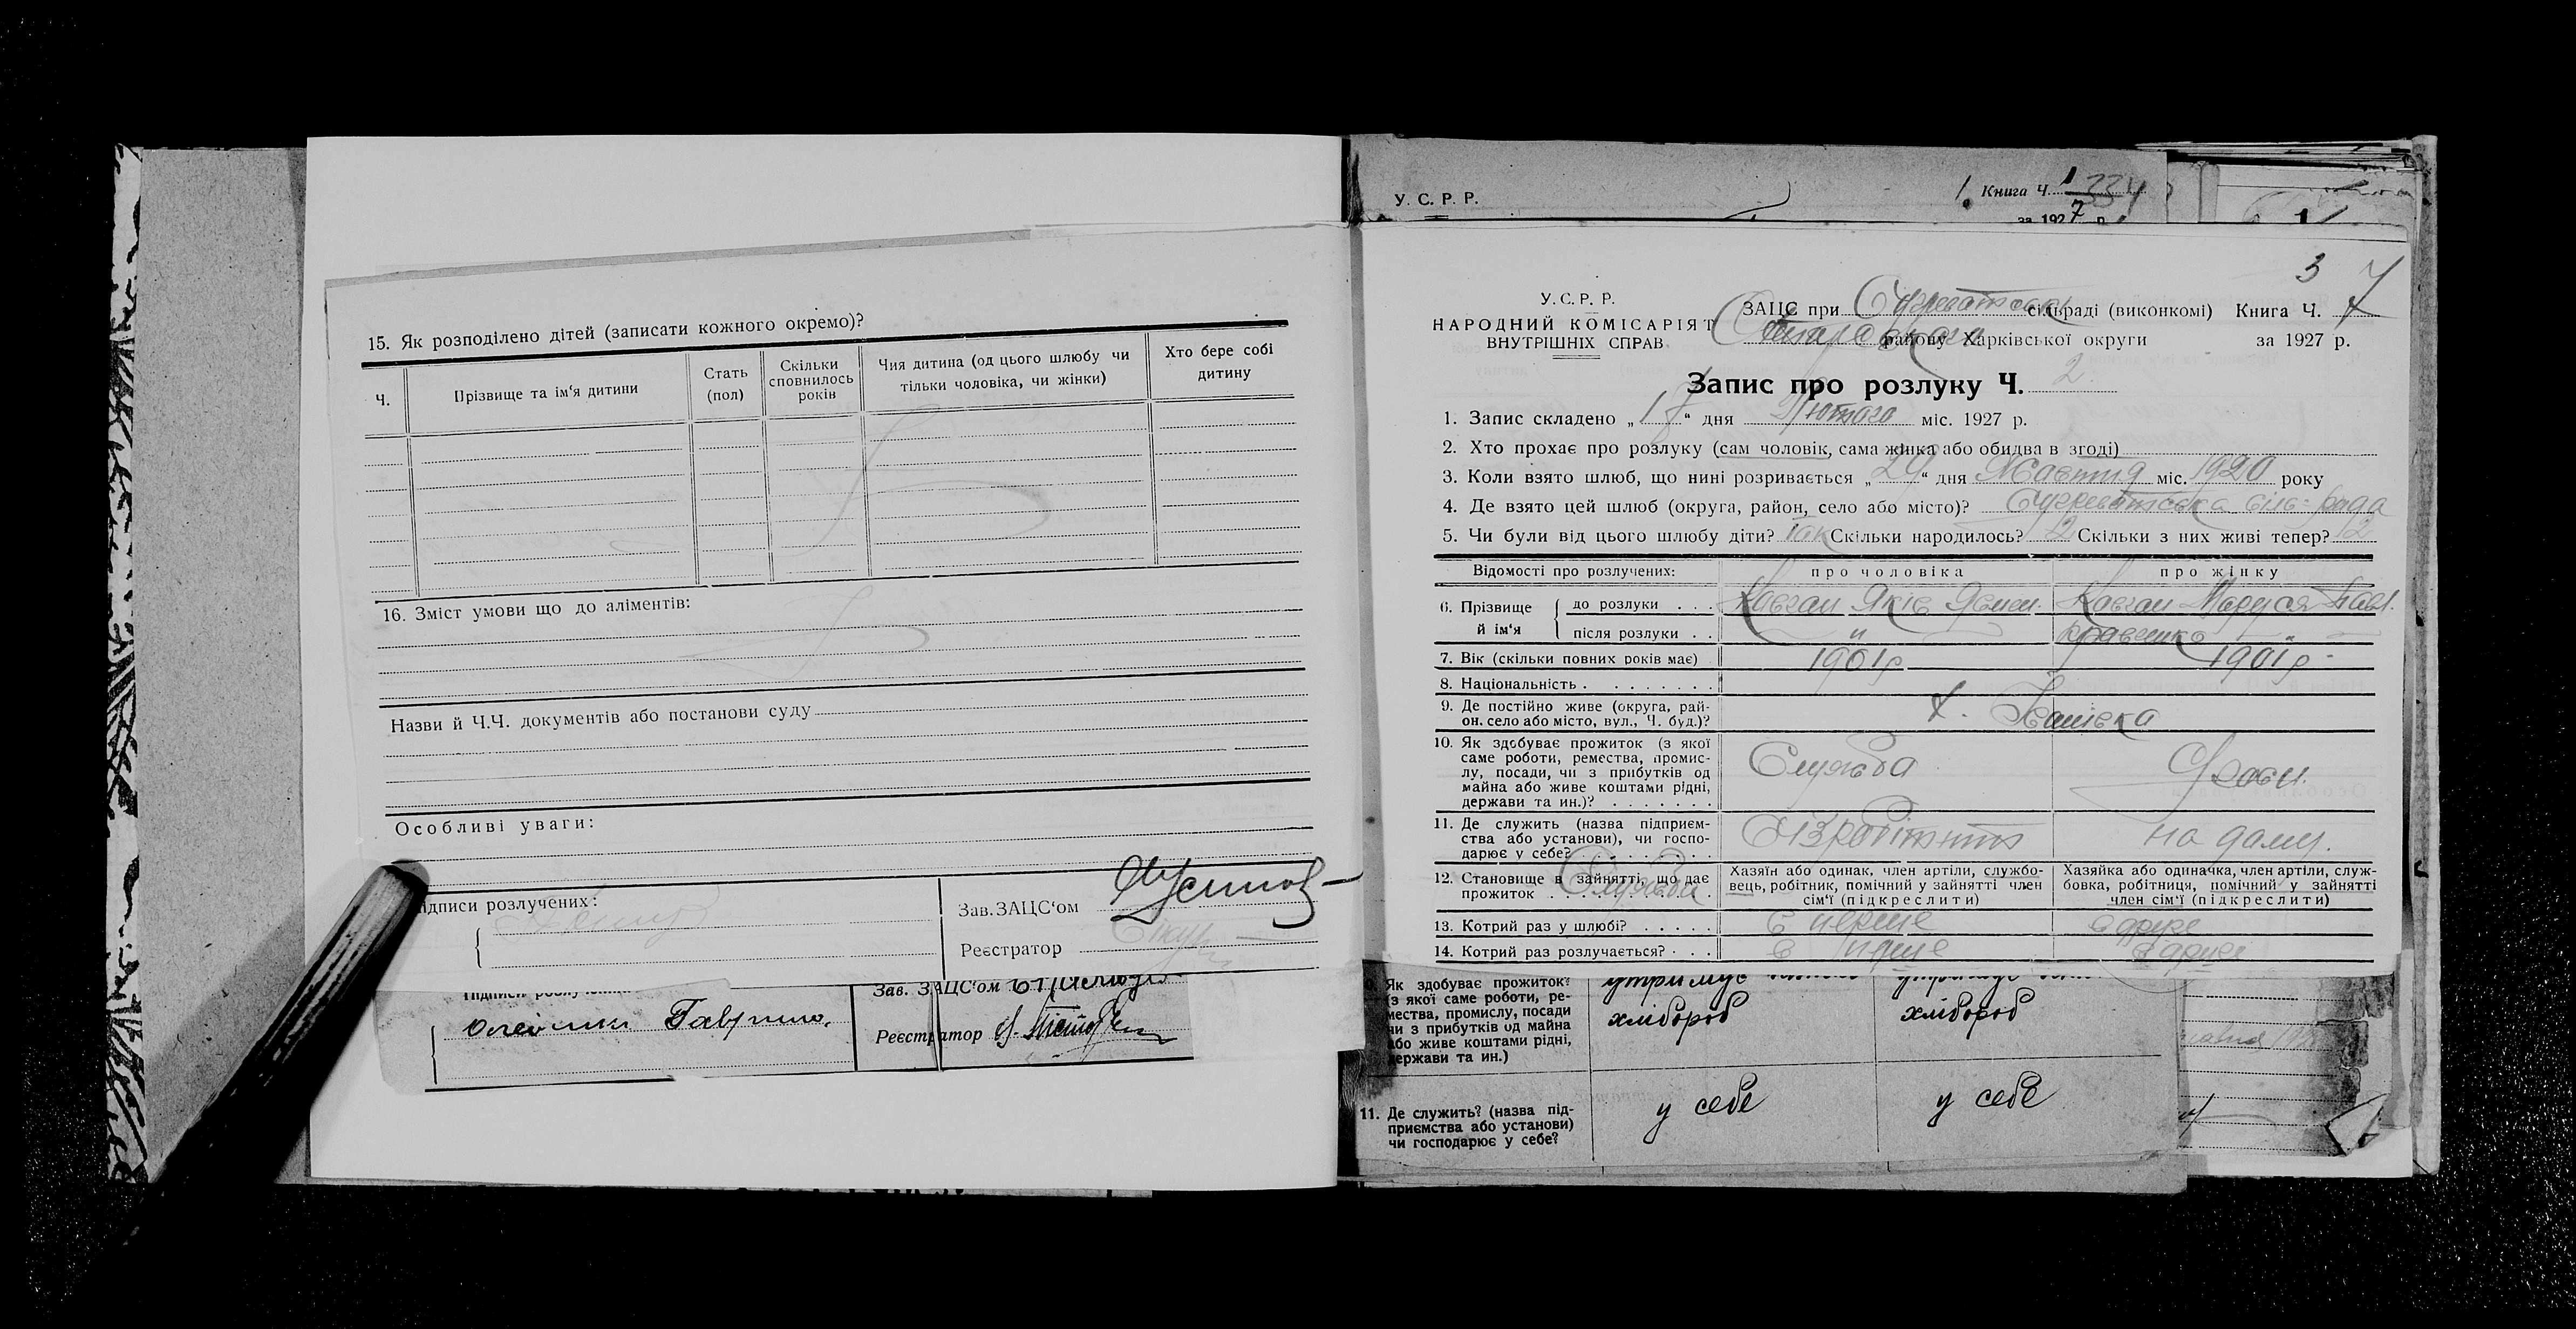 15. Як розподілено дітей (записати кожного окремо)?
Ч.
Прізвище та ім'я дитини
Стать (пол)
Скільки сповнилось років
Чия дитина (од цього шлюбу чи тільки чоловіка, чи жінки)
Хто бере собі дитину
16. Зміст умови що до аліментів:
Назви й Ч.Ч. документів або постанови суду
Особливі уваги:
ідписи розлучених:
Зав. ЗАЦС'ом
Реєстратор
Зав. ЗАЦС'ом
Гаврило
Реєстратор
У. С. Р. Р.
1. Книга Ч. 1 334
за 1927 р.
3
У. С. Р. Р.
НАРОДНИЙ КОМІСАРІЯТ
ВНУТРІШНІХ СПРАВ
ЗАЦС при сільраді (виконкомі) Книга Ч.
району Харківської округи за 1927 р.
Запис про розлуку Ч. 2
1. Запис складено „17“ дня Лютого міс. 1927 р.
2. Хто прохає про розлуку (сам чоловік, сама жінка або обидва в згоді)
3. Коли взято шлюб, що нині розривається „29“ дня Жовтня міс. 1920 року
4. Де взято цей шлюб (округа, район, село або місто)? сіль-рада
5. Чи були від цього шлюбу діти? Так Скільки народилось? 2 Скільки з них живі тепер? 2
Відомості про розлучених: про чоловіка про жінку
6. Прізвище й ім'я
до розлуки . . . Ковган Яків Ковган Маруся Павл.
після розлуки . . " Кравченко "
7. Вік (скільки повних років має) 1901р 1901р
8. Національність
9. Де постійно живе (округа, район, село або місто, вул., Ч. буд.)?
х.
10. Як здобуває прожиток (з якої саме роботи, ремества, промислу, посади, чи з прибутків од майна або живе коштами рідні, держави та ин.)?
Служба
11. Де служить (назва підприємства або установи), чи господарює у себе?
на дому.
12. Становище в зайнятті, що дає прожиток
Служба
Хазяїн або одинак, член артіли, службовець, робітник, помічний у зайнятті член сім'ї (підкреслити)
Хазяйка або одиначка, член артіли, службовка, робітниця, помічний у зайнятті член сім'ї (підкреслити)
13. Котрий раз у шлюбі? є перше є друге
14. Котрий раз розлучається? є перше є друге
Як здобуває прожиток?
(з якої саме роботи, ремества, промислу, посади чи з прибутків од майна або живе коштами рідні, держави та ин.)
хлібороб
хлібороб
11. Де служить? (назва підприємства або установи) чи господарює у себе?
у себе
у себе